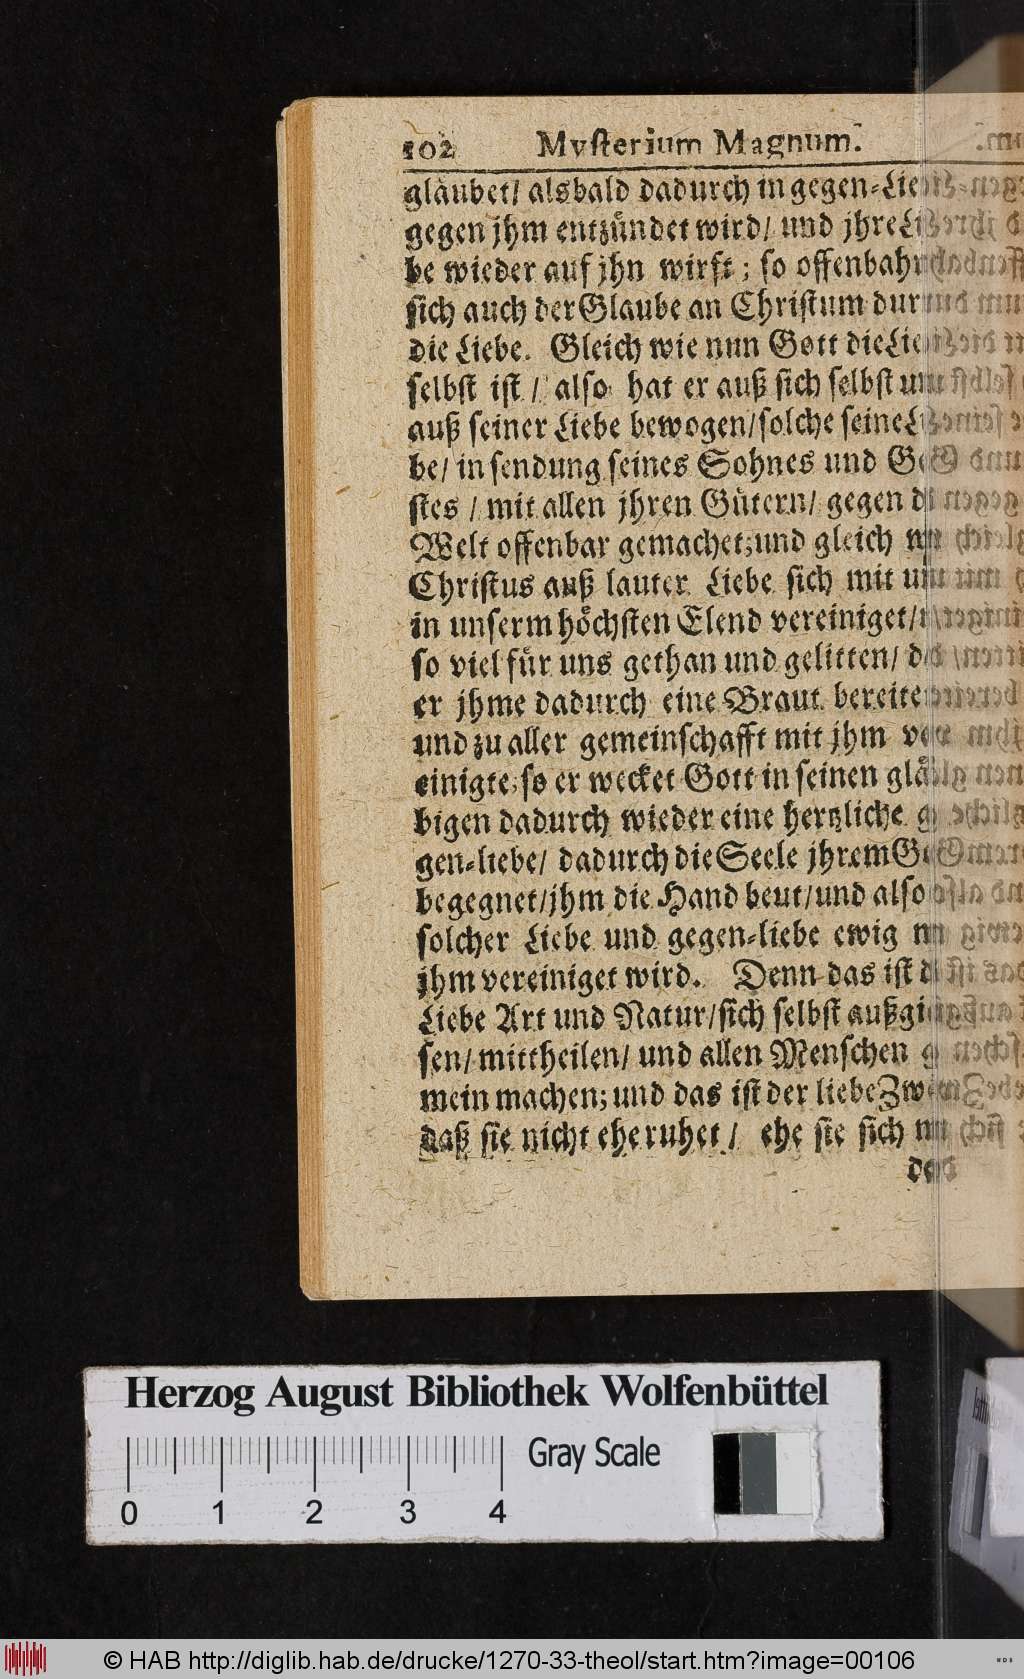 102 Mysterium Magnum.
gläubet/ alsbald dadurch in gegen-Lie
gegen jhm entzündet wird/ und jhre Li
be wieder auf jhn wirft; so offenbahr
sich auch der Glaube an Christum dur
die Liebe. Gleich wie nun Gott die Lie
selbst ist/ also hat er auß sich selbst un
auß seiner Liebe bewogen/ solche seine Li
be/ in sendung seines Sohnes und Gei
stes/ mit allen jhren Gütern/ gegen di
Welt offenbar gemachet; und gleich wi
Christus auß lauter Liebe sich mit un
in unserm höchsten Elend vereiniget/
so viel für uns gethan und gelitten/ da
er jhme dadurch eine Braut bereite
und zu aller gemeinschafft mit jhm ver
einigte; so er wecket Gott in seinen gläu
bigen dadurch wieder eine hertzliche ge
gen-liebe/ dadurch die Seele jhrem Go
begegnet/ jhm die Hand beut/ und also
solcher Liebe und gegen-liebe ewig mi
jhm vereiniget wird. Denn das ist d
Liebe Art und Natur/ sich selbst außgi
sen/ mittheilen/ und allen Menschen g
mein machen; und das ist der liebe Zwe
daß sie nicht ehe ruhet/ ehe sie sich mi
Herzog August Bibliothek Wolfenbüttel
Gray Scale
0 1 2 3 4
© HAB http://diglib.hab.de/drucke/1270-33-theol/start.htm?image=00106